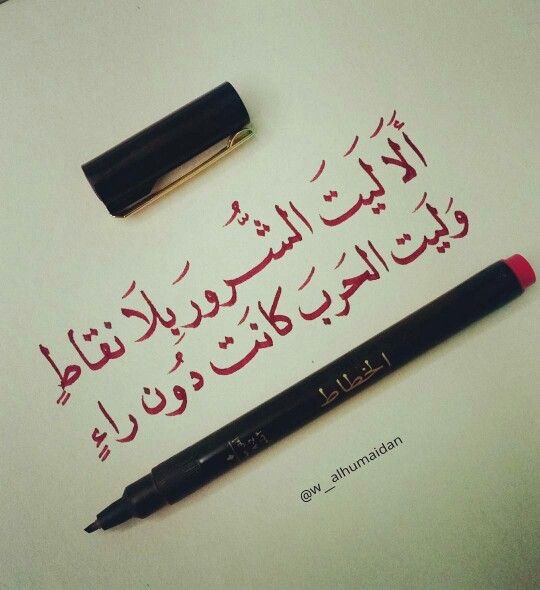 أَلَا لَيْتَ الشُّرورَ بِلَا نقاطٍ
وَليت الحَربَ كانَت دُون راءٍ
الخطاط
@w_alhumaidan